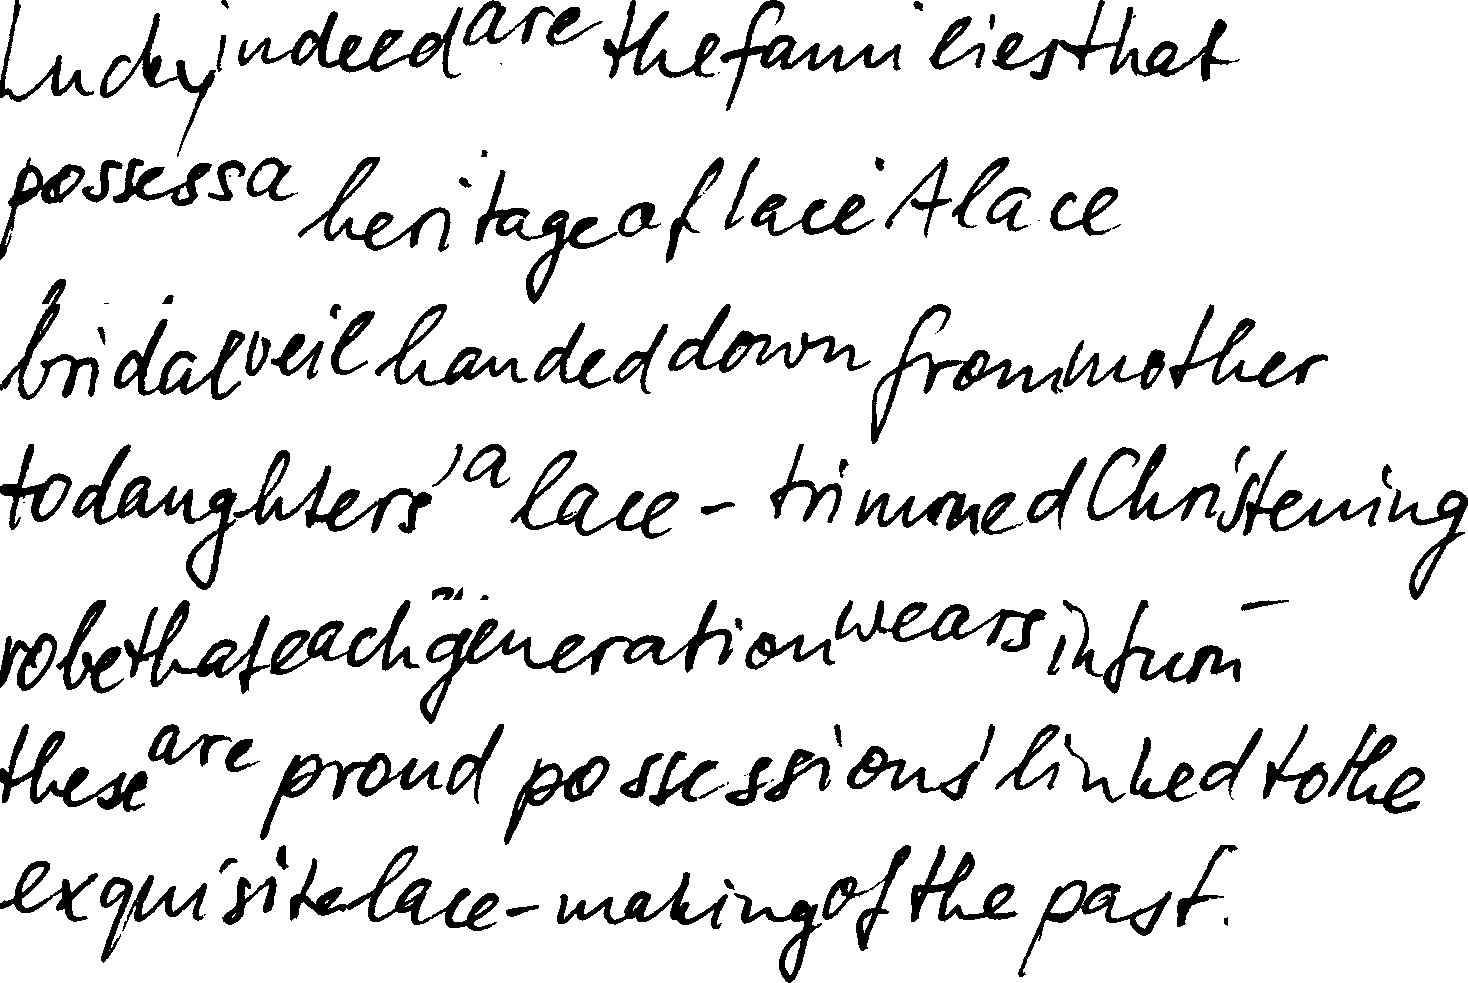 Lucky indeed are the families that
possess a heritage of lace. A lace
bridal veil handed down from mother
to daughters, a lace - trimmed Christening
robe that each generation wears in turn -
these are proud possessions' linked to the
exquisite lace - making of the past.